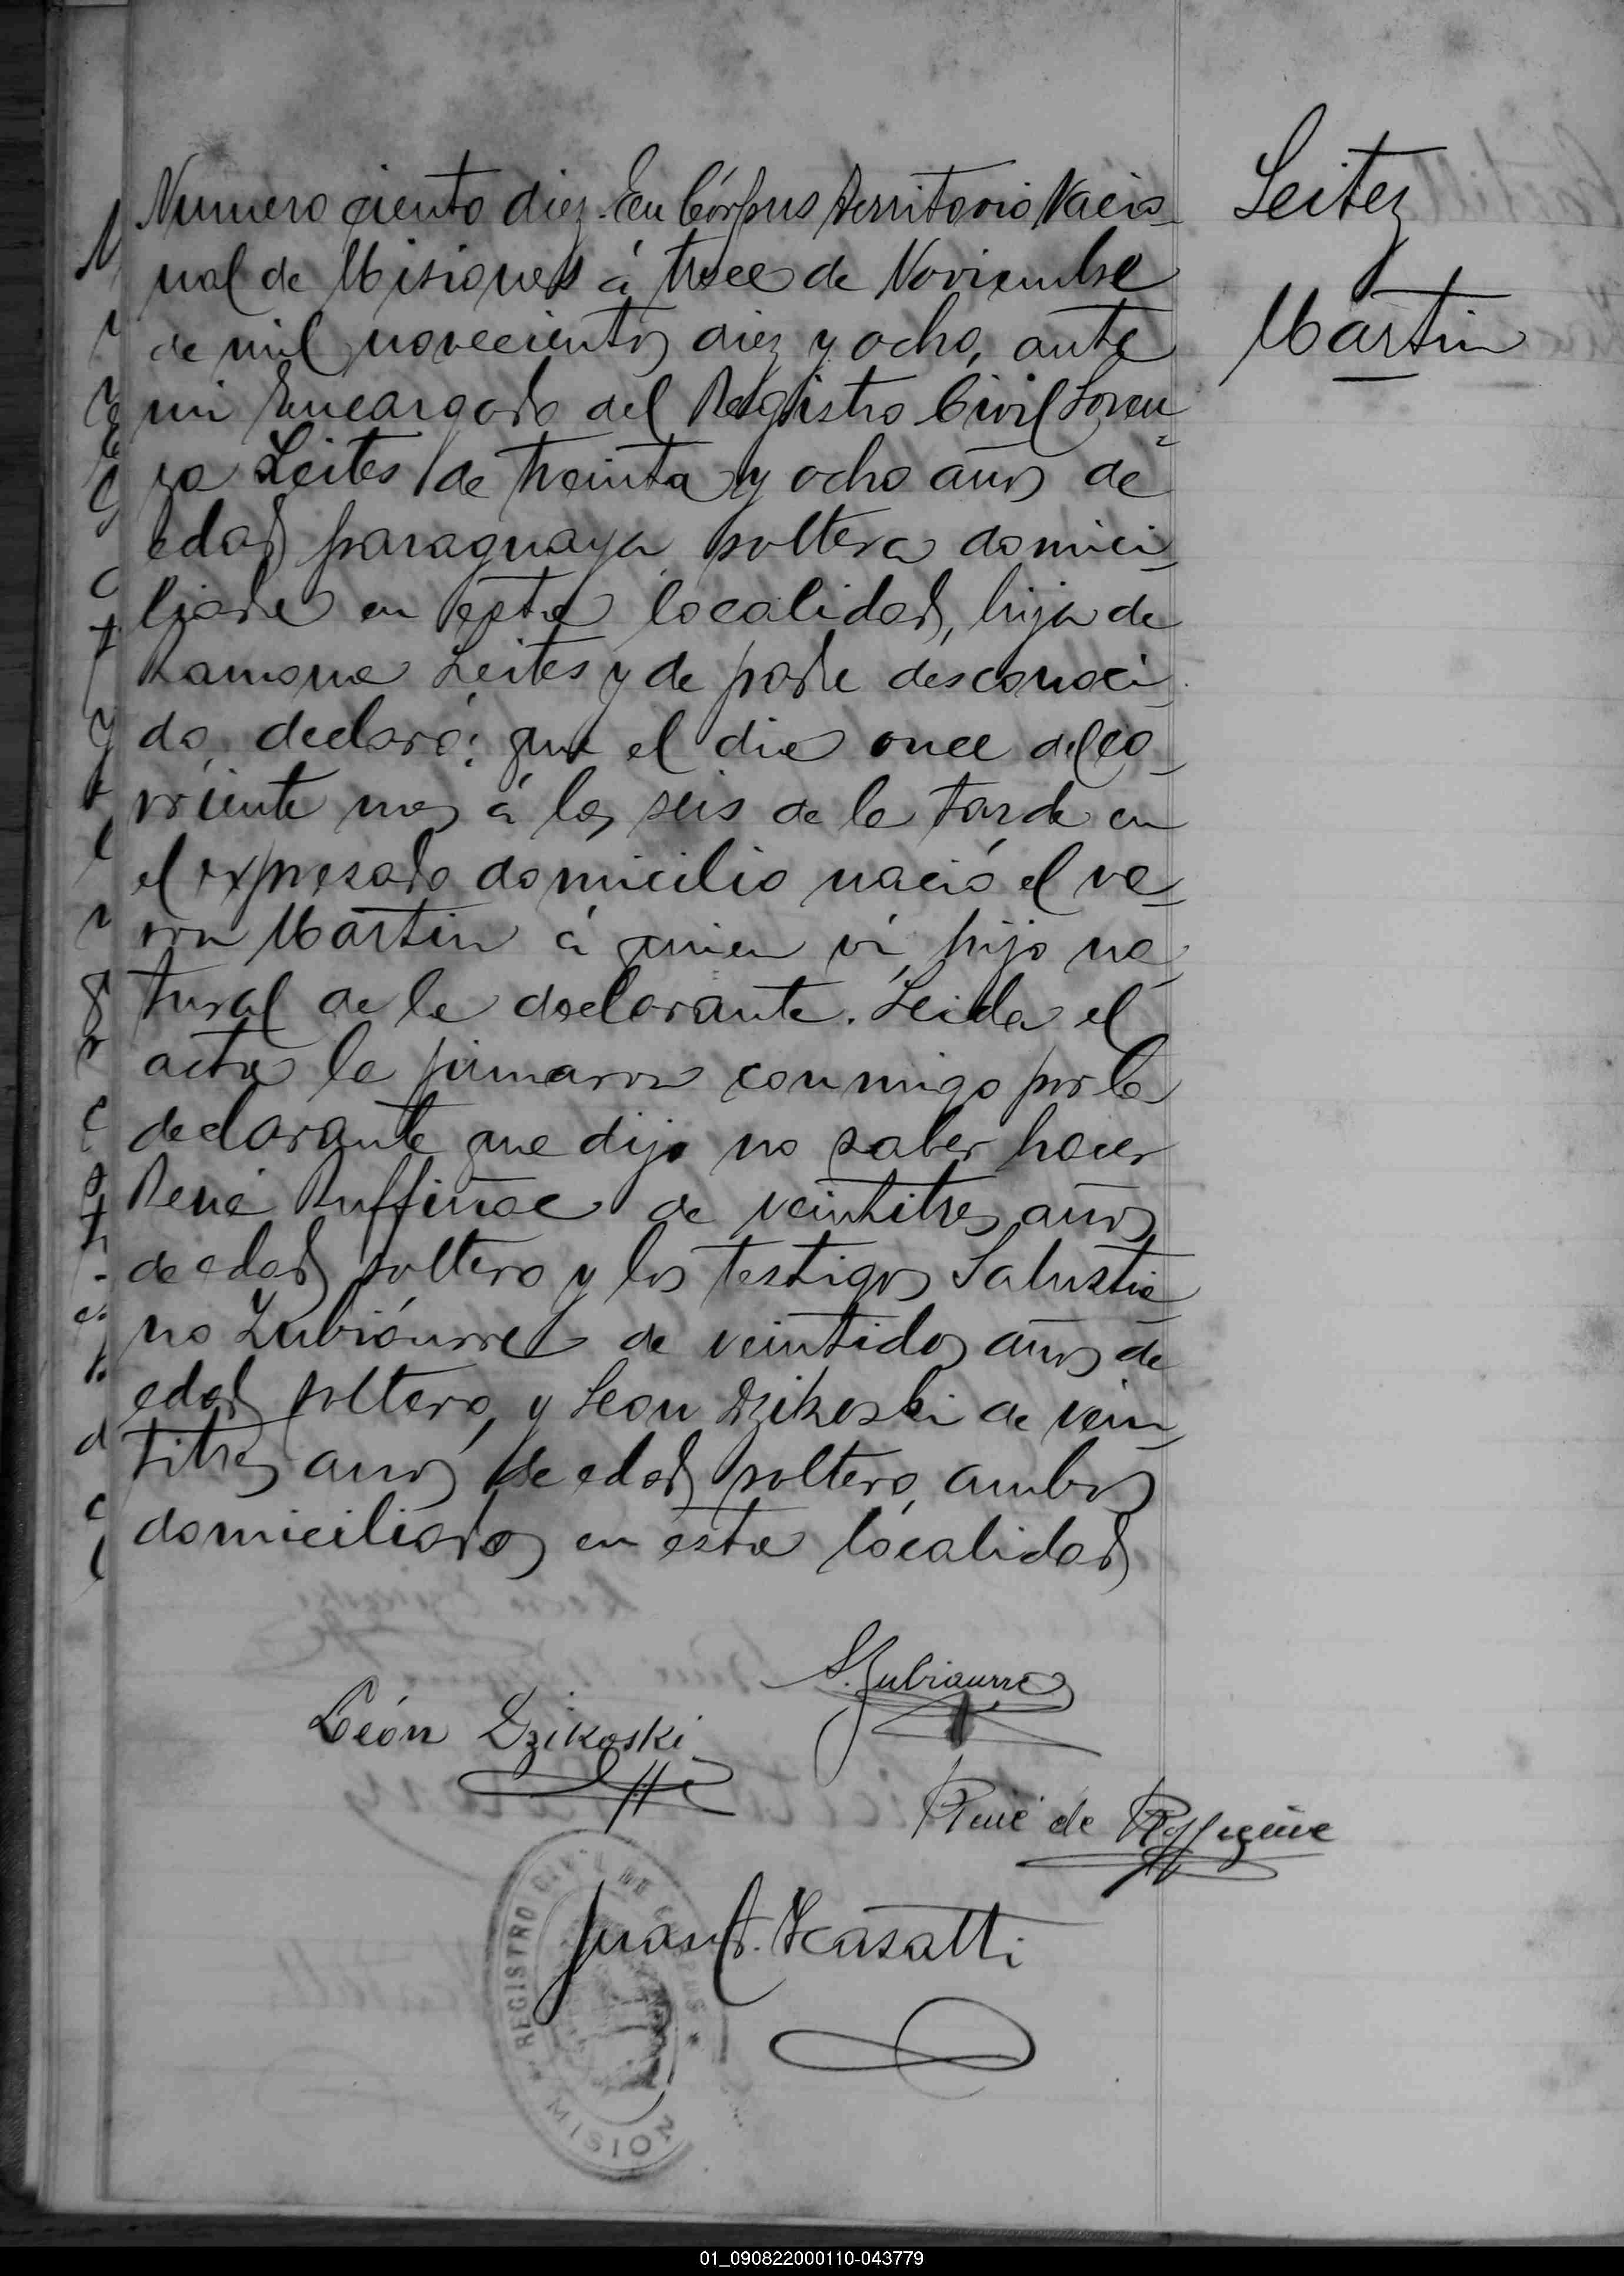 Numero ciento diez. En Córpus Territorio Nacio-
nal de Misiones á trece de Noviembre
de mil novecientos diez y ocho, ante
mi Encargado del Registro Civil Loren-
za Leites de treinta y ocho años de
edad paraguaya soltera domici-
liada en esta localidad, hija de
Ramona Leites y de padre desconoci-
do, declaró: que el dia once del co-
rriente mes á las seis de la tarde en
el expresado domicilio nació el va-
ron Martin á quien ví, hijo na-
tural de la declarante. Leida el
acta la firmaron conmigo por la
declarante que dijo no saber hacer
René Ruffinac de veintitres años
de edad soltero y los testigos Salustia-
no Zubiaurre de veintidos años de
edad soltero, y Leon Dzikoski de vein-
titres años de edad soltero, ambos
domiciliados en esta localidad
Leitez
Martin
S. Zubiaurre
León Dzikoski
René de
Juan A. Casatti
REGISTRO CIVIL DE CORPUS
MISION
01_090822000110-043779